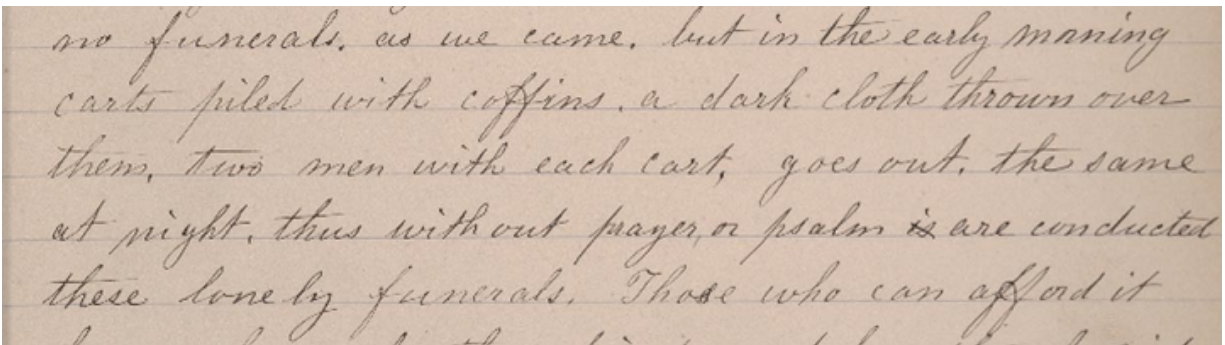 no funerals. as we came. but in the early morning
carts piled with coffins. a dark cloth thrown over
them, two men with each cart, goes out. the same
at night. thus without prayer, or psalm is are conducted
these lonely funerals. Those who can afford it